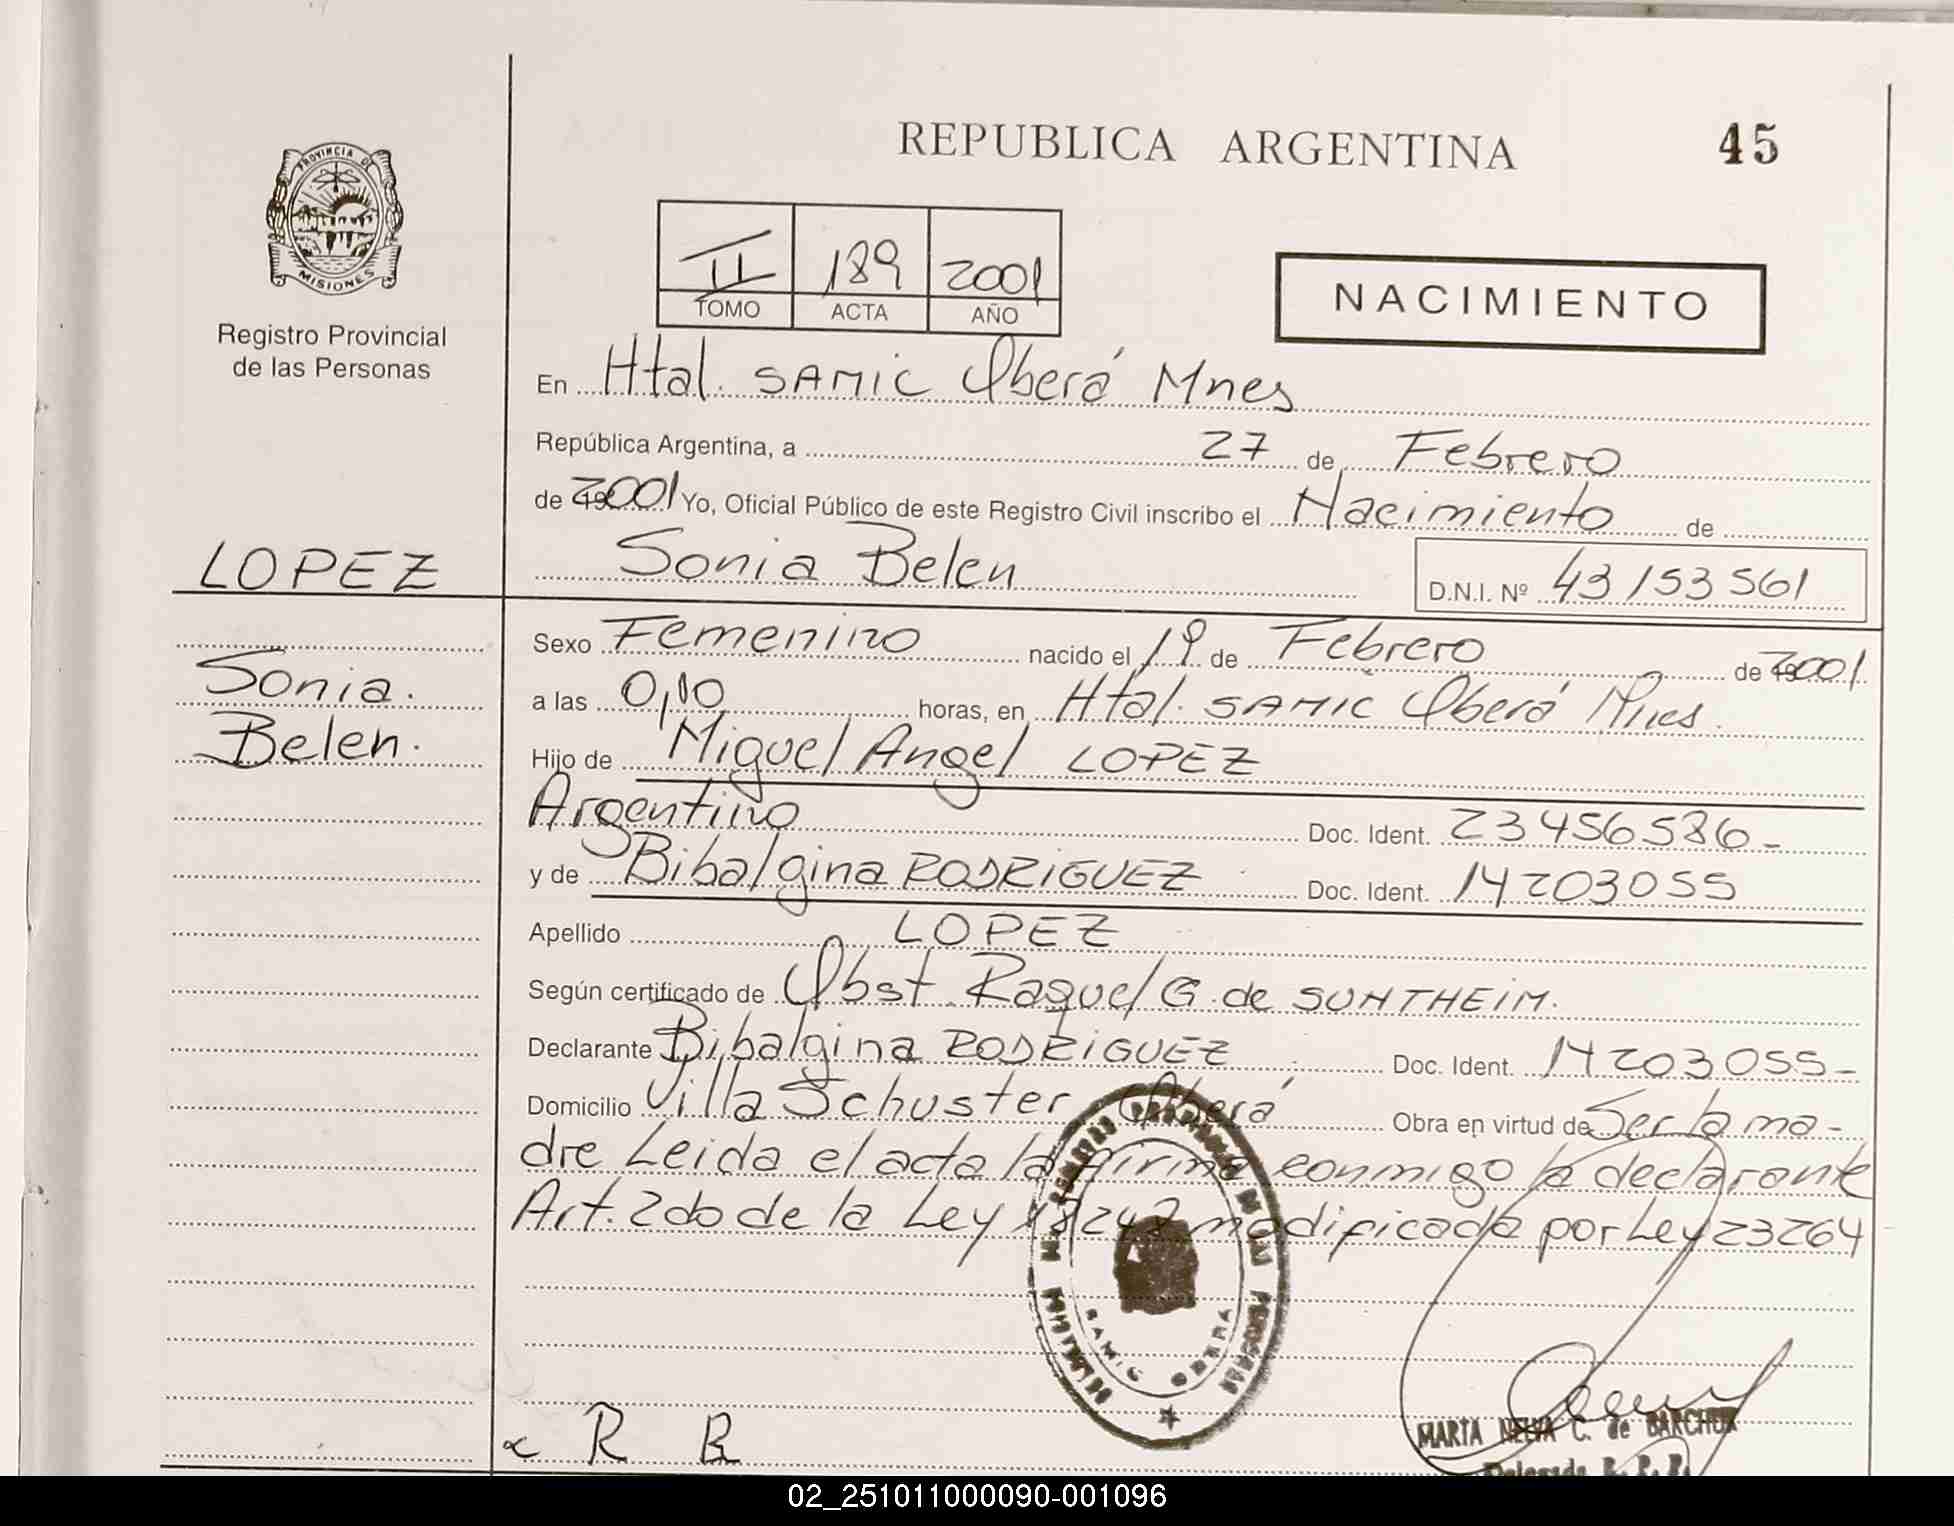 REPUBLICA ARGENTINA
45
PROVINCIA DE
MISIONES
Registro Provincial
de las Personas
II 189 2001
TOMO ACTA AÑO
NACIMIENTO
En Htal. SAMIC Oberá Mnes
República Argentina, a 27 de Febrero
de 2001 Yo, Oficial Público de este Registro Civil inscribo el Nacimiento de
LOPEZ
Sonia Belen
D.N.I. Nº 43153561
Sonia.
Belen.
Sexo Femenino nacido el 19 de Febrero de 2001
a las 0,10 horas, en Htal. SAMIC Oberá Mnes.
Hijo de Miguel Angel LOPEZ
Argentino Doc. Ident. 23456586-
y de Bibalgina RODRIGUEZ Doc. Ident. 14203055
Apellido LOPEZ
Según certificado de Obst. Raquel G. de SUNTHEIM.
Declarante Bibalgina RODRIGUEZ Doc. Ident. 14203055-
Domicilio Villa Schuster Oberá Obra en virtud de Ser la ma-
dre Leida el acta la firma conmigo la declarante
Art. 2do de la Ley 18248 modificada por Ley 23264
SAMIC OBERA
R B
MARTA NELVA C. de BARCHUK
Delegada R. P. P.
02_251011000090-001096